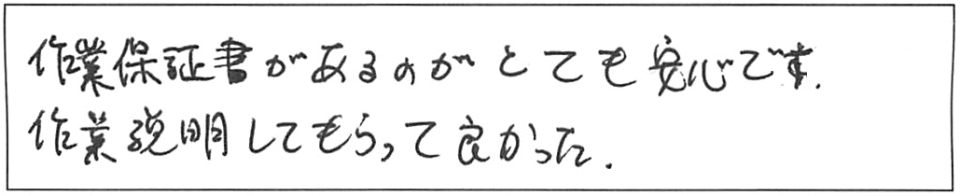 作業保証書があるのがとても安心です.
作業説明してもらって良かった.